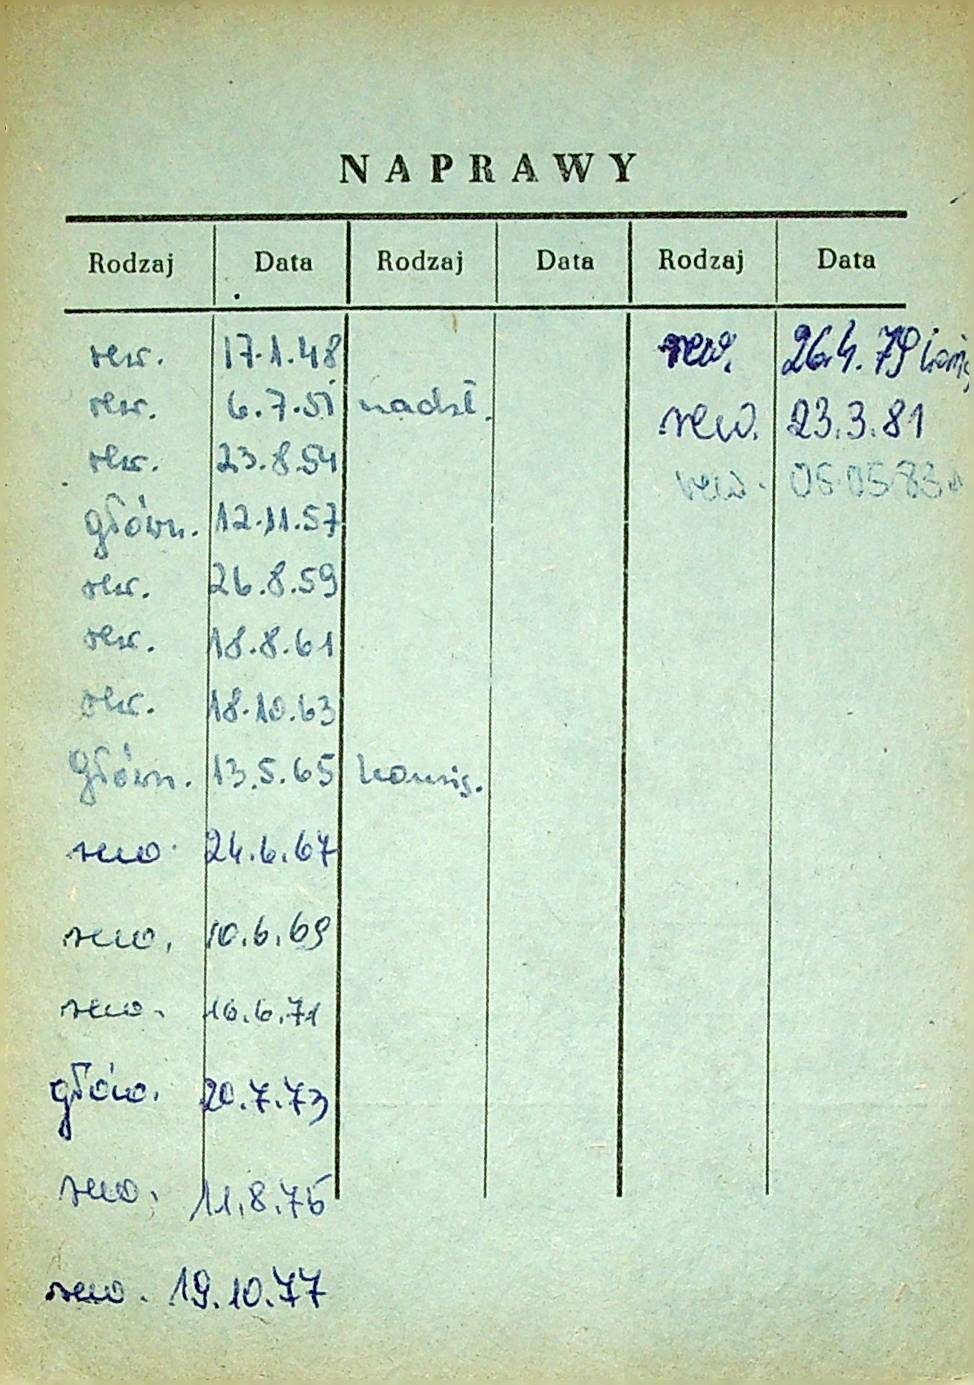 NAPRAWY
Rodzaj Data Rodzaj Data Rodzaj Data
rew. 17.1.48 rew. 26.4.79
rew. 6.7.51 nadzł. rew. 23.3.81
rew. 23.8.54 rew. 05.05.83
główn. 12.11.57
rew. 26.8.59
rew. 18.8.61
rew. 18.10.63
główn. 13.5.65 konsig.
rew. 24.6.67
rew. 10.6.69
rew. 16.6.71
głów. 20.7.73
rew. 11.8.75
rew. 19.10.77